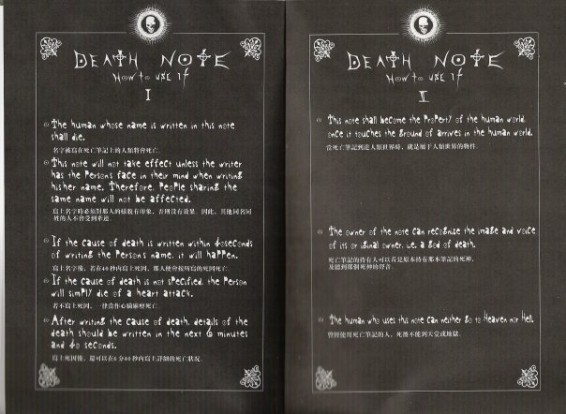 DEATH NOTE
How to USE If
I
The human whose name is written in this note
shall die.
名字被寫在死亡筆記上的人類將會死亡.
This note will not take effect unless the writer
has the Persons face in their mind when writing
his/her name. Therefore, People sharing the
same name will not be affected.
If the cause of death is written within 40seconds
of writing the Persons name, it will happen.
If the cause of death is not specified, the Person
will simply die of a heart attack.
After writing the cause of death, details of the
death should be written in the next 6 minutes
and 40 seconds.
DEATH NOTE
How to USE If
II
This note shall become the Property of the human world,
once it touches the Ground of arrives in the human world.
當死亡筆記到達人類世界時, 就是屬于人類世界的物件.
The owner of the note can recognise the image and voice
of its original owner, i.e. a God of death.
The human who uses this note can neither go to Heaven nor Hell.